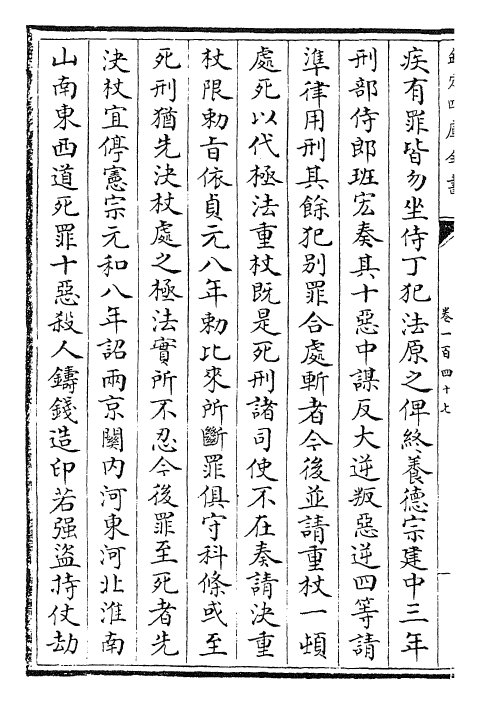 欽定四庫全書
卷一百四十七
疾有罪皆勿坐侍丁犯法原之俾終養德宗建中三年
刑部侍郎班宏奏其十惡中謀反大逆叛惡逆四等請
準律用刑其餘犯别罪合處斬者今後並請重杖一頓
處死以代極法重杖既是死刑諸司使不在奏請決重
杖限勅旨依貞元八年勅比來所斷罪俱守科條或至
死刑猶先決杖處之極法實所不忍今後罪至死者先
決杖宜停憲宗元和八年詔兩京關内河東河北淮南
山南東西道死罪十惡殺人鑄錢造印若强盜持仗劫